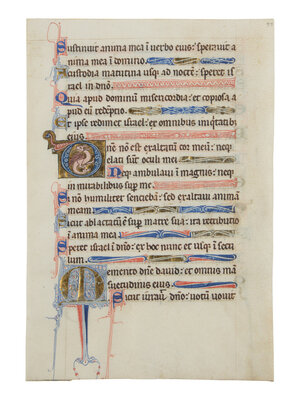 Sustinuit anima mea ī uerbo eius: sperauit a
nima mea ī domino.
A custodia matutina usq; ad noctē: speret is
rael in dn̄o.
Quia apud dominū misericordia: et copiosa a
pud eū redēptio.
Et ipse redimet israel: ex omnibus iniq̄tatib;
eius.
Dn̄e nō est exaltatū cor meū: neq;
elati sūt oculi mei.
Neq; ambulaui ī magnis: neq;
in mirabilibus sup̄ me.
Si nō humiliter sentiebā: sed exaltaui animā
meam.
Sicut ablactatꝰ ē sup̄ matre sua: ita retributio
ī anima mea.
Speret israel ī dn̄o: ex hoc nunc et usq; ī secu
lum.
Memento dn̄e dauid: et omnis mā
suetudinis eius.
Sicut iurauit dn̄o: uotū uouit